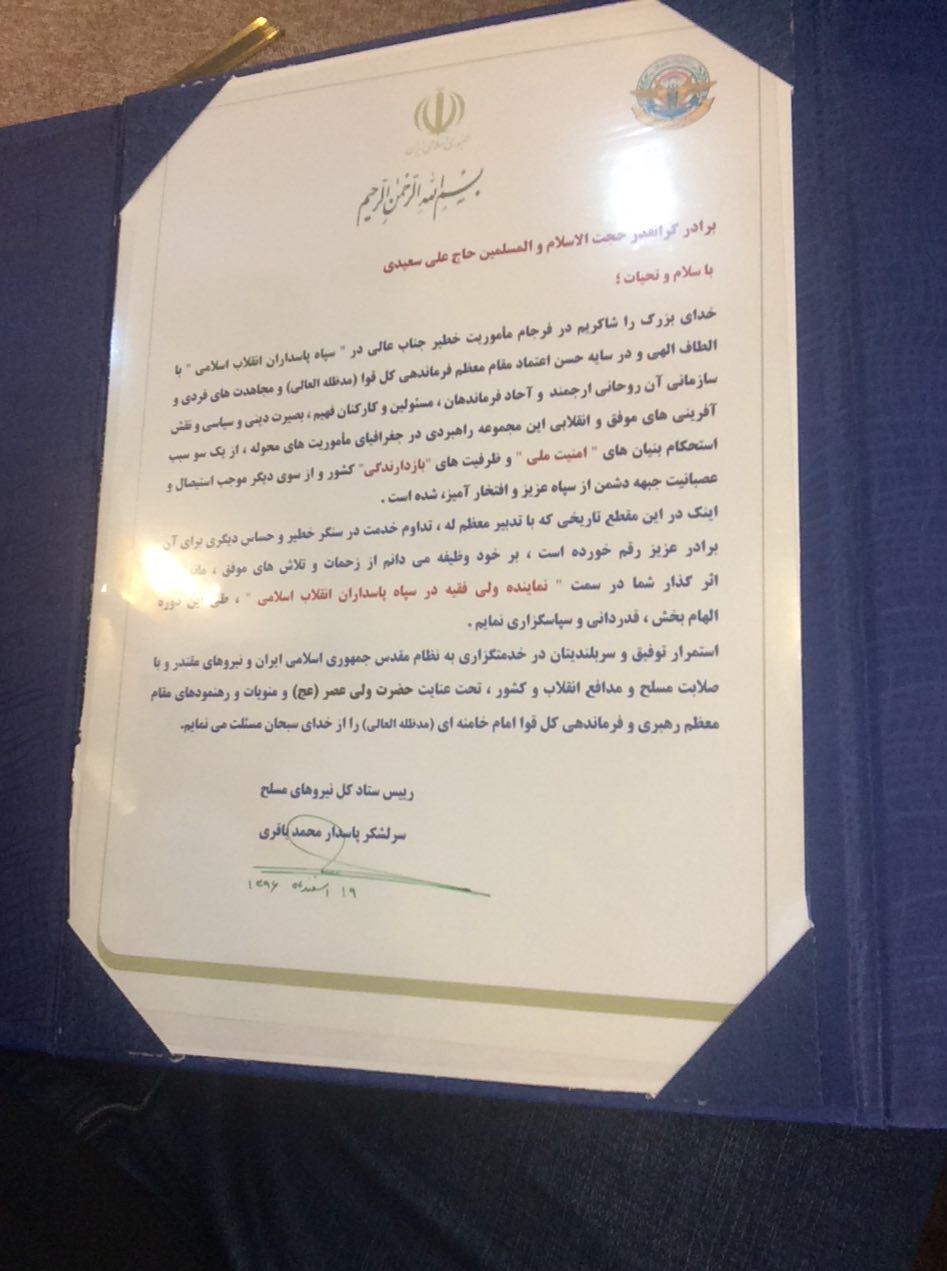 جمهوری اسلامی ایران
بسم الله الرحمن الرحیم
برادر گرانقدر حجت الاسلام و المسلمین حاج علی سعیدی
با سلام و تحیات ؛
خدای بزرگ را شاکریم در فرجام مأموریت خطیر جناب عالی در " سپاه پاسداران انقلاب اسلامی " با
الطاف الهی و در سایه حسن اعتماد مقام معظم فرماندهی کل قوا (مدظله العالی) و مجاهدت های فردی و
سازمانی آن روحانی ارجمند و آحاد فرماندهان ، مسئولین و کارکنان فهیم ، بصیرت دینی و سیاسی و نقش
آفرینی های موفق و انقلابی این مجموعه راهبردی در جغرافیای مأموریت های محوله ، از یک سو سبب
استحکام بنیان های " امنیت ملی " و ظرفیت های "بازدارندگی" کشور و از سوی دیگر موجب استیصال و
عصبانیت جبهه دشمن از سپاه عزیز و افتخار آمیز، شده است .
اینک در این مقطع تاریخی که با تدبیر معظم له ، تداوم خدمت در سنگر خطیر و حساس دیگری برای آن
برادر عزیز رقم خورده است ، بر خود وظیفه می دانم از زحمات و تلاش های موفق ،
اثر گذار شما در سمت " نماینده ولی فقیه در سپاه پاسداران انقلاب اسلامی " ، طی این دوره
الهام بخش ، قدردانی و سپاسگزاری نمایم .
استمرار توفیق و سربلندیتان در خدمتگزاری به نظام مقدس جمهوری اسلامی ایران و نیروهای مقتدر و با
صلابت مسلح و مدافع انقلاب و کشور ، تحت عنایت حضرت ولی عصر (عج) و منویات و رهنمودهای مقام
معظم رهبری و فرماندهی کل قوا امام خامنه ای (مدظله العالی) را از خدای سبحان مسئلت می نمایم.
رییس ستاد کل نیروهای مسلح
سرلشکر پاسدار محمد باقری
۱۹ اسفند ماه ۱۳۹۶